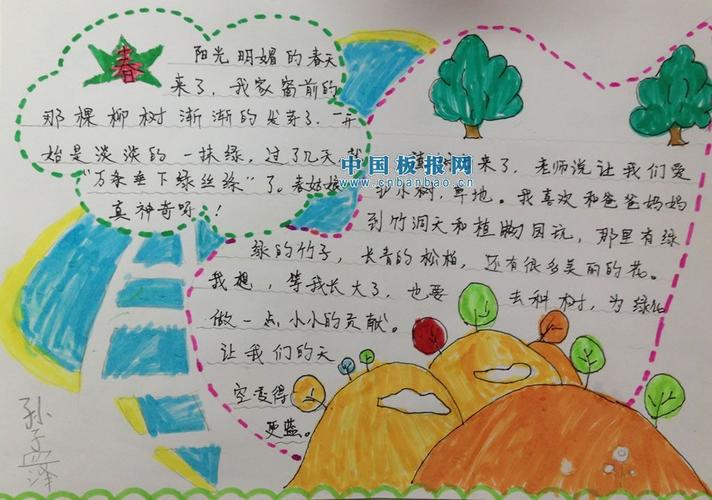 春
阳光明媚的春天
来了，我家窗前的
那棵柳树渐渐的发芽了.一开
始是淡淡的一抹绿，过了几天
"万条垂下绿丝绦"了。春姑娘
真神奇呀！
中国板报网
www.cnbanbao.cn
来了，老师说让我们爱
小树，草地。我喜欢和爸爸妈妈
到竹洞天和植物园玩，那里有绿
绿的竹子，长青的松柏，还有很多美丽的花。
我想，等我长大了，也要去种树，为绿化
做一点小小的贡献。
让我们的天
空变得
更蓝。
孙孟泽